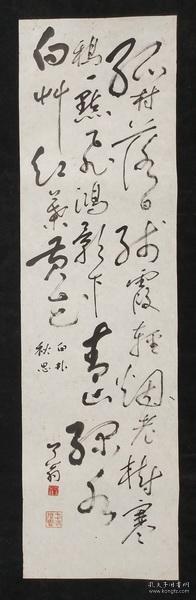 孤村落日残霞轻烟老树寒
鸦一点飞鸿影下青山绿水
白草红叶黄花
白朴
秋思
孔夫子旧书网